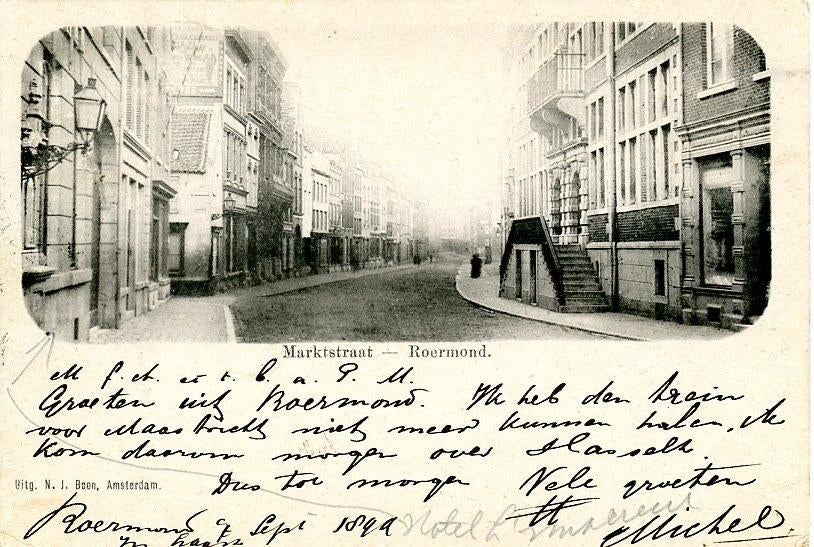 Marktstraat — Roermond.
M. f. A. et t. C. a. P. M.
Groeten uit Roermond. Ik heb den train
voor Maastricht niet meer kunnen halen, Ik
kom daarom morgen over Hasselt.
Dus tot morgen Vele groeten
Uitg. N. J. Boon, Amsterdam.
Roermond 9 Sept 1899
In haast
Michel
Hotel L'Empereur